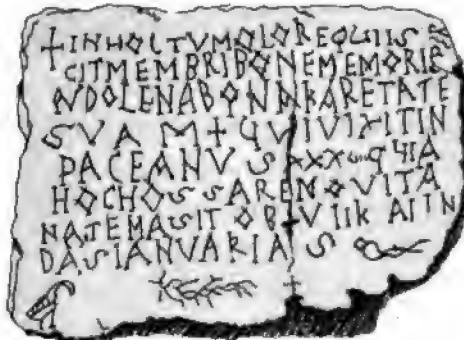 +INHOCTVMOLOREQVIIS
CITMEMBRIBONEMEMORIE
NDOLENABONAKARETATE
SVA M+QVIVIXITIN
PACEANVS XXX QVIA
HOCHOSSARENOVITA
NATEMASITOBVIIKAIIN
DASIANVARIAS